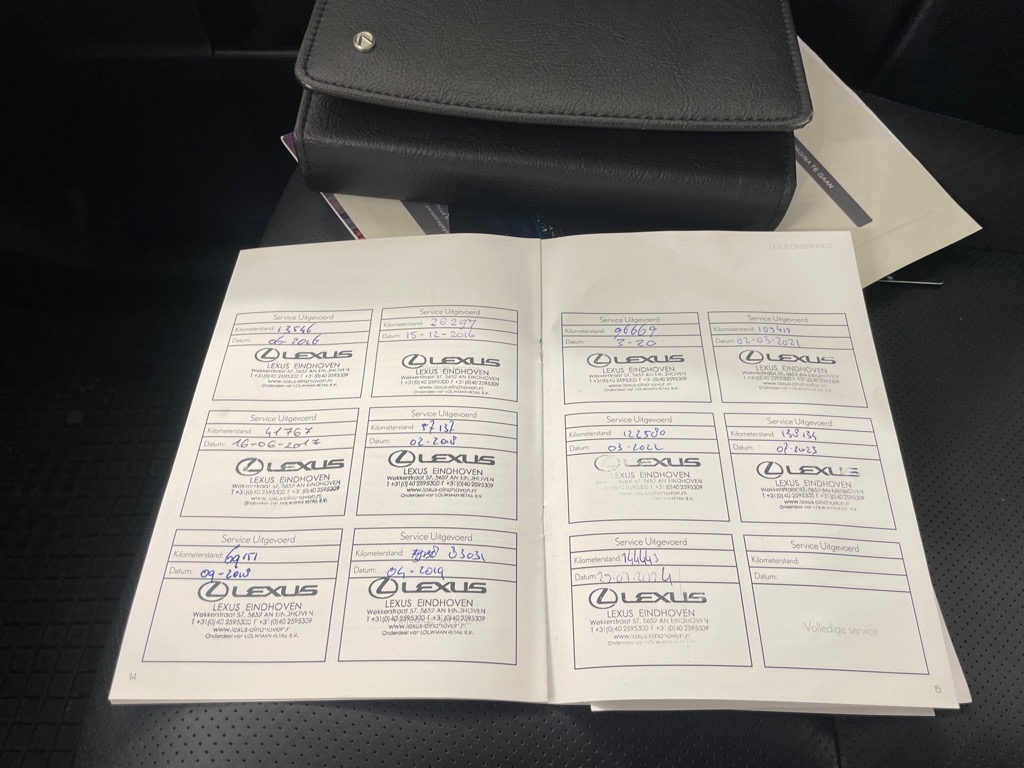 PAGINA TE GAAN
LEXUS ONDERHOUD
Service Uitgevoerd
Kilometerstand: 13546
Datum: 06-2016
LEXUS
LEXUS EINDHOVEN
Wekkerstraat 57, 5652 AN EINDHOVEN
T +31(0)40 2595300 F +31(0)40 2595309
www.lexus-eindhoven.nl
Onderdeel van LOUWMAN RETAIL B.V.
Service Uitgevoerd
Kilometerstand: 28297
Datum: 15-12-2016
LEXUS
LEXUS EINDHOVEN
Wekkerstraat 57, 5652 AN EINDHOVEN
T +31(0)40 2595300 F +31(0)40 2595309
www.lexus-eindhoven.nl
Onderdeel van LOUWMAN RETAIL B.V.
Service Uitgevoerd
Kilometerstand: 41767
Datum: 16-06-2017
LEXUS
LEXUS EINDHOVEN
Wekkerstraat 57, 5652 AN EINDHOVEN
T +31(0)40 2595300 F +31(0)40 2595309
www.lexus-eindhoven.nl
Onderdeel van LOUWMAN RETAIL B.V.
Service Uitgevoerd
Kilometerstand: 57137
Datum: 02-2018
LEXUS
LEXUS EINDHOVEN
Wekkerstraat 57, 5652 AN EINDHOVEN
T +31(0)40 2595300 F +31(0)40 2595309
www.lexus-eindhoven.nl
Onderdeel van LOUWMAN RETAIL B.V.
Service Uitgevoerd
Kilometerstand: 69151
Datum: 09-2018
LEXUS
LEXUS EINDHOVEN
Wekkerstraat 57, 5652 AN EINDHOVEN
T +31(0)40 2595300 F +31(0)40 2595309
www.lexus-eindhoven.nl
Onderdeel van LOUWMAN RETAIL B.V.
Service Uitgevoerd
Kilometerstand: 83031
Datum: 04-2019
LEXUS
LEXUS EINDHOVEN
Wekkerstraat 57, 5652 AN EINDHOVEN
T +31(0)40 2595300 F +31(0)40 2595309
www.lexus-eindhoven.nl
Onderdeel van LOUWMAN RETAIL B.V.
14
Service Uitgevoerd
Kilometerstand: 96669
Datum: 3-20
LEXUS
LEXUS EINDHOVEN
Wekkerstraat 57, 5652 AN EINDHOVEN
T +31(0)40 2595300 F +31(0)40 2595309
www.lexus-eindhoven.nl
Onderdeel van LOUWMAN RETAIL B.V.
Service Uitgevoerd
Kilometerstand: 109419
Datum: 02-03-2021
LEXUS
LEXUS EINDHOVEN
Wekkerstraat 57, 5652 AN EINDHOVEN
T +31(0)40 2595300 F +31(0)40 2595309
www.lexus-eindhoven.nl
Onderdeel van LOUWMAN RETAIL B.V.
Service Uitgevoerd
Kilometerstand: 122580
Datum: 03-2022
LEXUS
LEXUS EINDHOVEN
Wekkerstraat 57, 5652 AN EINDHOVEN
T +31(0)40 2595300 F +31(0)40 2595309
www.lexus-eindhoven.nl
Onderdeel van LOUWMAN RETAIL B.V.
Service Uitgevoerd
Kilometerstand: 133134
Datum: 07-2023
LEXUS
LEXUS EINDHOVEN
Wekkerstraat 57, 5652 AN EINDHOVEN
T +31(0)40 2595300 F +31(0)40 2595309
www.lexus-eindhoven.nl
Onderdeel van LOUWMAN RETAIL B.V.
Service Uitgevoerd
Kilometerstand: 144443
Datum: 29.07.2024
LEXUS
LEXUS EINDHOVEN
Wekkerstraat 57, 5652 AN EINDHOVEN
T +31(0)40 2595300 F +31(0)40 2595309
www.lexus-eindhoven.nl
Onderdeel van LOUWMAN RETAIL B.V.
Service Uitgevoerd
Kilometerstand:
Datum:
Volledige service
15